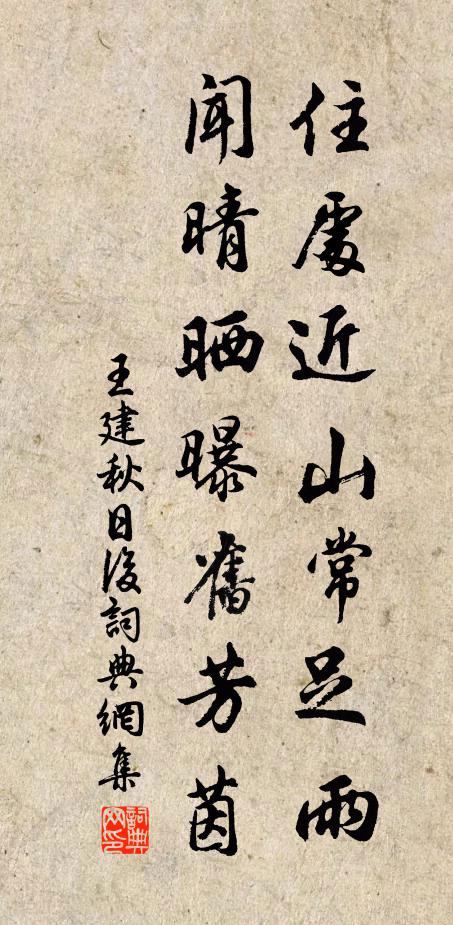 住處近山常足雨
聞晴晒曝舊芳茵
王建秋日後詞典網集
詞典網印